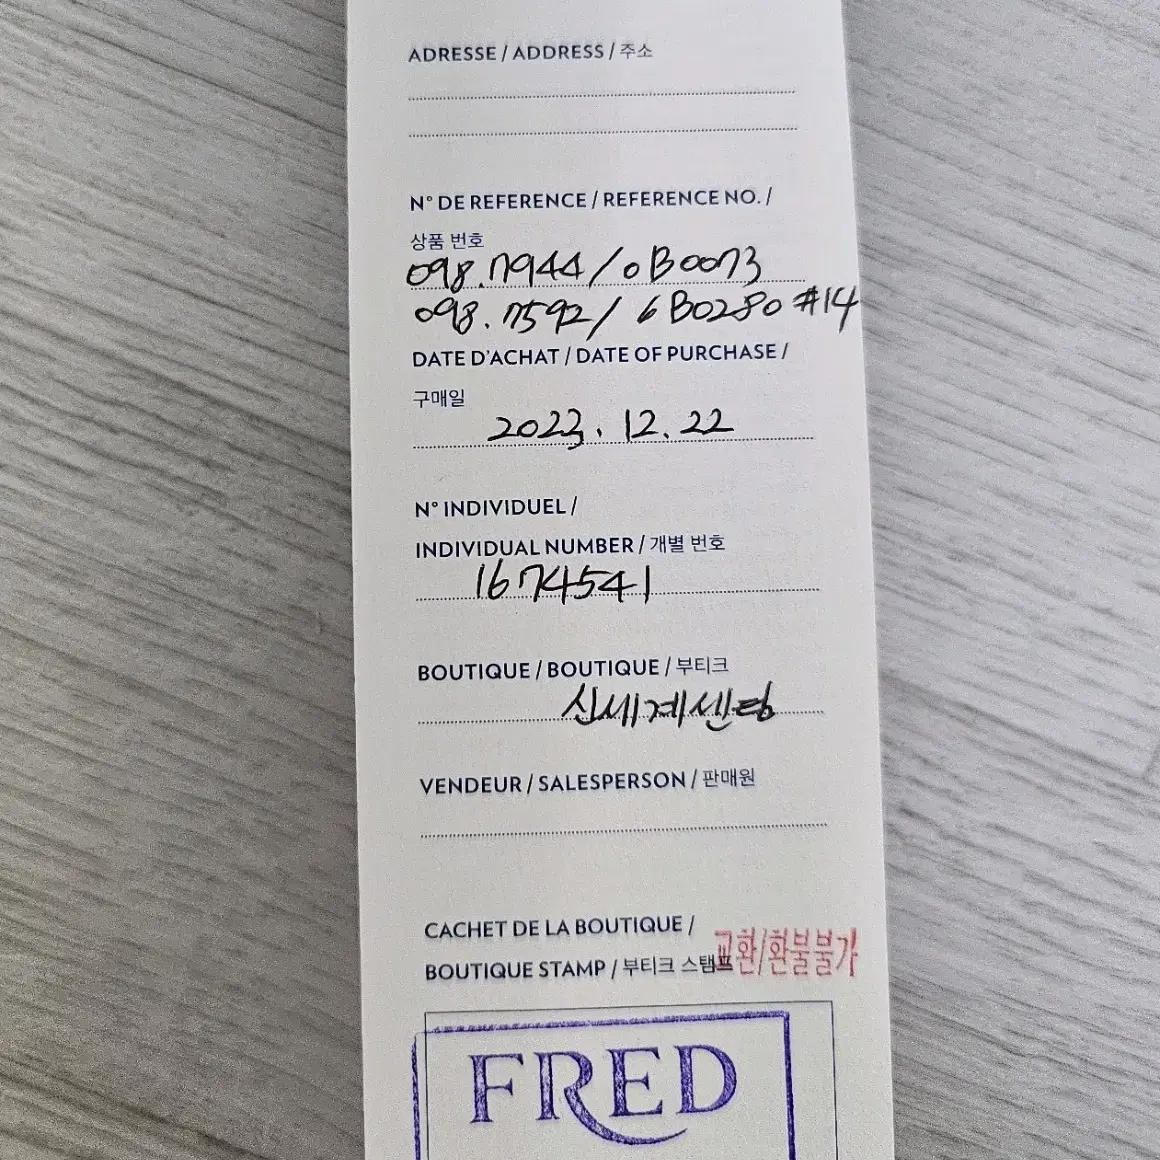 ADRESSE / ADDRESS / 주소
N° DE REFERENCE / REFERENCE NO. /
상품 번호
098.7944 / 0B0073
098.7592 / 6B0280 #14
DATE D'ACHAT / DATE OF PURCHASE /
구매일
2023. 12. 22
N° INDIVIDUEL /
INDIVIDUAL NUMBER / 개별 번호
1674541
BOUTIQUE / BOUTIQUE / 부티크
신세계센텀
VENDEUR / SALESPERSON / 판매원
CACHET DE LA BOUTIQUE /
BOUTIQUE STAMP / 부티크 스탬프
교환/환불불가
FRED